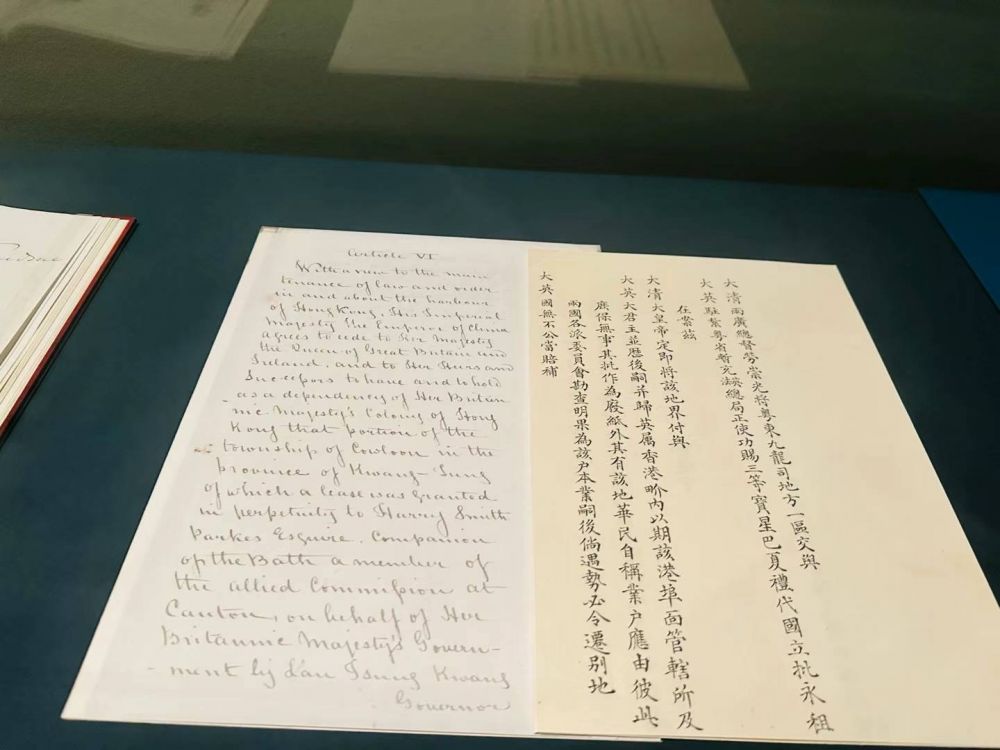 Article VI
With a view to the main
tenance of law and order
in and about the harbour
of Hong Kong, His Imperial
Majesty the Emperor of China
agrees to cede to Her Majesty
the Queen of Great Britain and
Ireland, and to Her Heirs and
Successors to have and to hold
as a dependency of Her Britan
nic Majesty's Colony of Hong
Kong that portion of the
township of Cowloon in the
province of Kwang-Tung
of which a lease was granted
in perpetuity to Harry Smith
Parkes Esquire, Companion
of the Bath a member of
the allied Commission at
Canton, on behalf of Her
Britannic Majesty's Govern-
ment by Lau Tsung Kwang
Governor
大清兩廣總督勞崇光將粵東九龍司地方一區交與
大英駐紮粵省暫充英法總局正使功賜三等寶星巴夏禮代國立批永租
在案茲
大清大皇帝定即將該地界付與
大英大君主並歷後嗣并歸英屬香港界內以期該港埠面管轄所及
庶保無事其批作為廢紙外其有該地華民自稱業户應由彼此
兩國各派委員會勘查明果為該户本業嗣後倘遇勢必令遷別地
大英國無不公當賠補